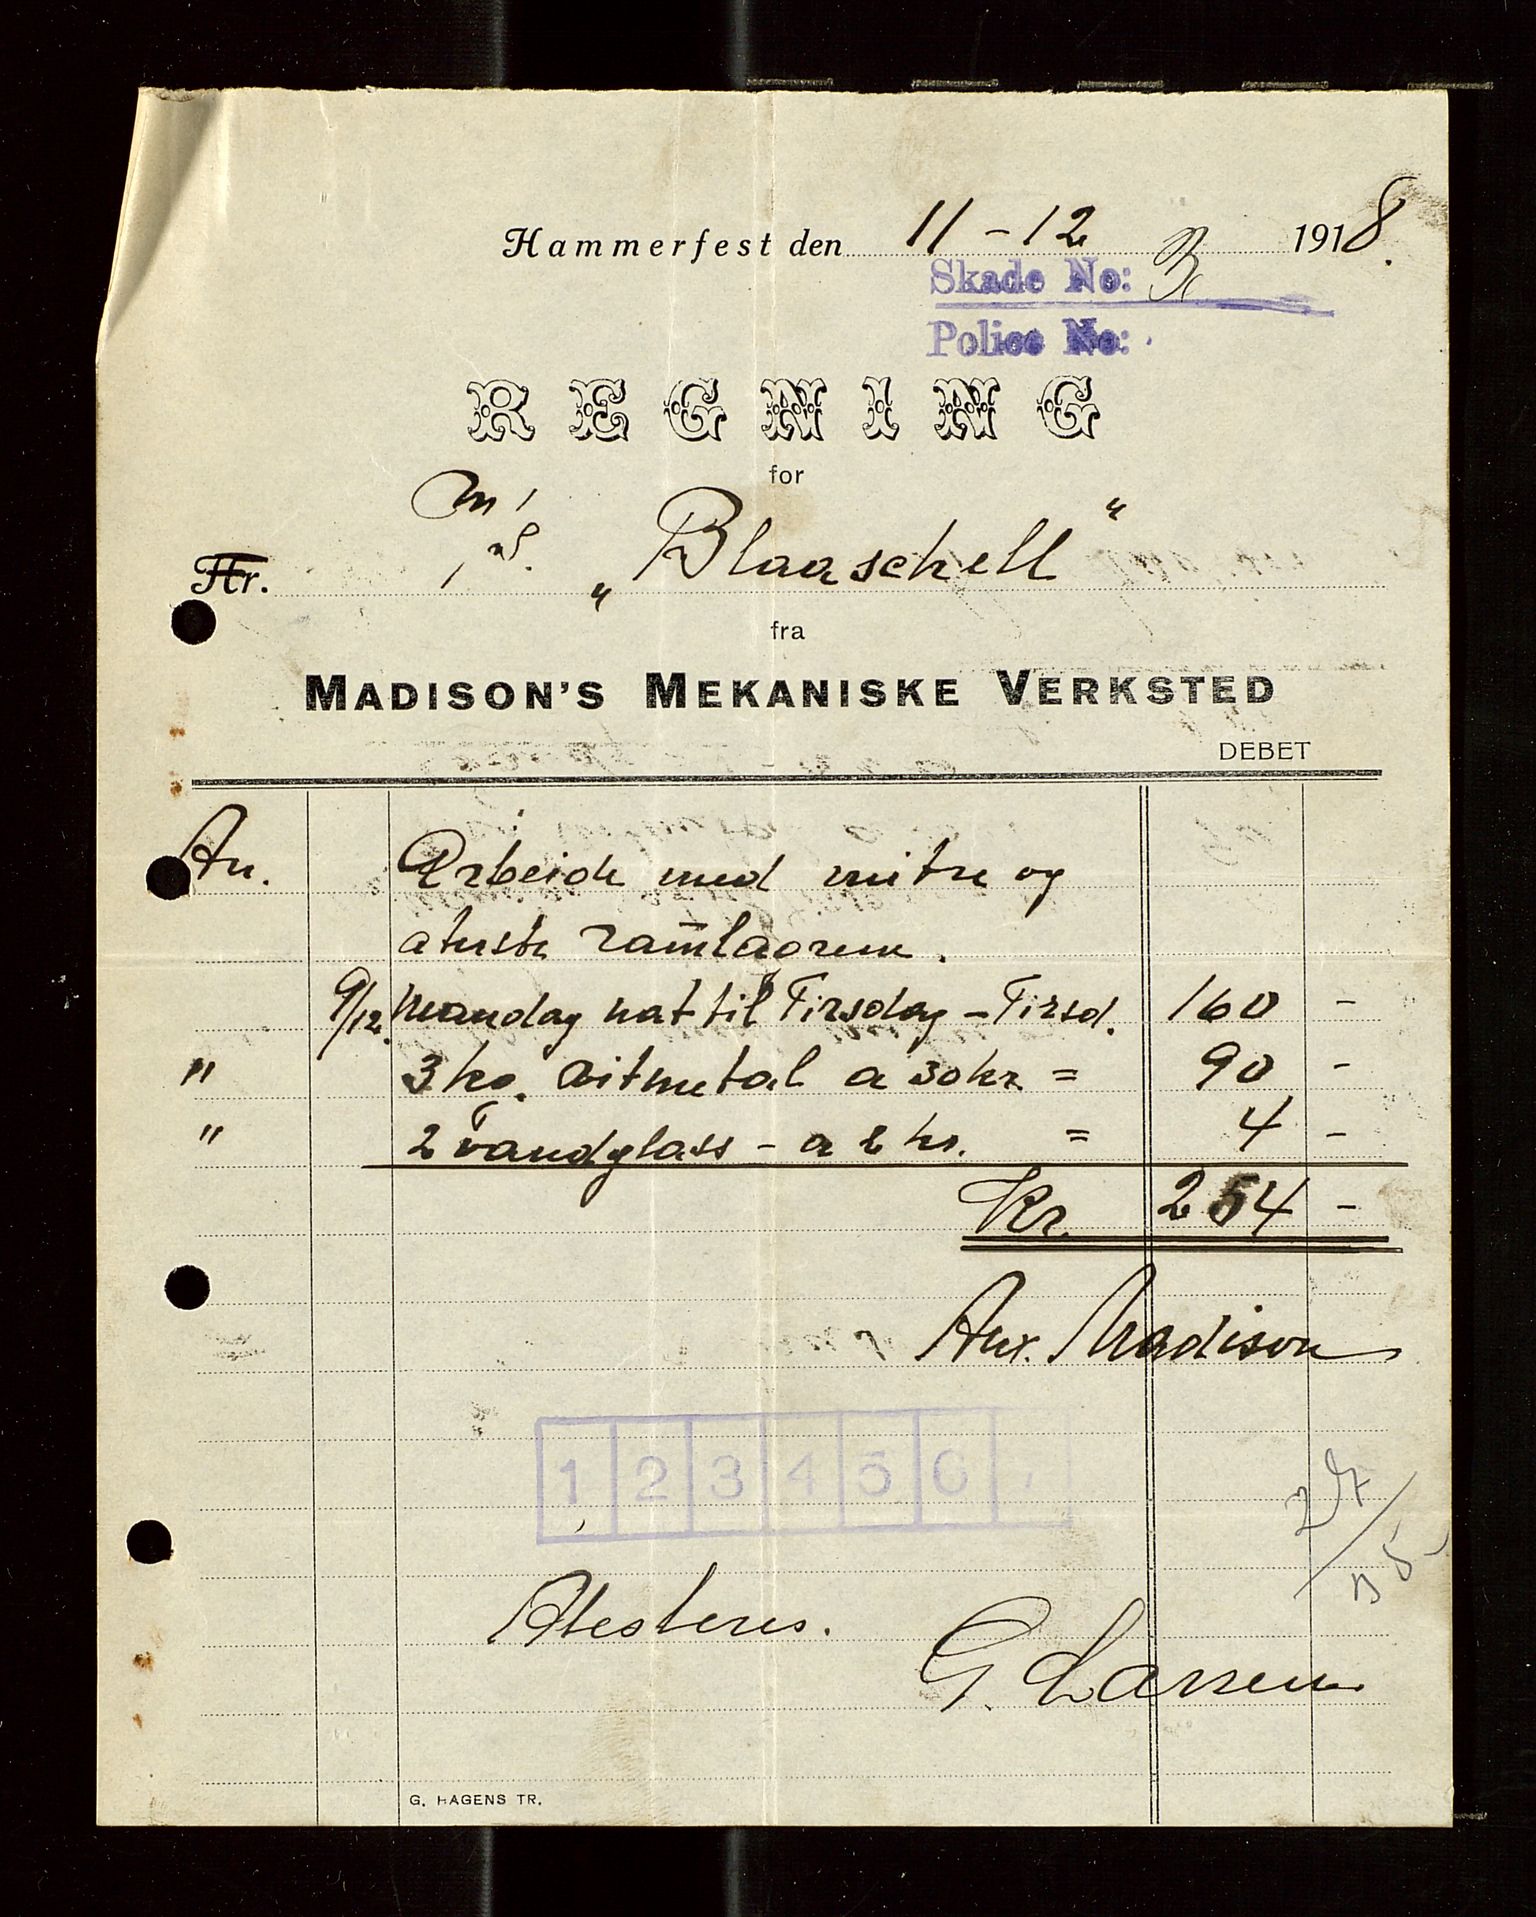 Hammerfest den 11-12 1918.
Skade No: 3
Police No:
REGNING
for
M/S.
Hr. „Blaaschell"
fra
MADISON'S MEKANISKE VERKSTED
DEBET
An. Arbeide med mitre og
aterste ramlagrene.
9/12. Mandag nat til Tirsdag - Tirsd. 160 -
" 3 kg. vitmetal a 30 kr = 90 -
" 2 Vandglass - a 2 kr. = 4 -
Kr. 254 -
Anx. Madison
1 2 3 4 5 6 7
Atesteres.
G. Larsen
G. HAGENS TR.